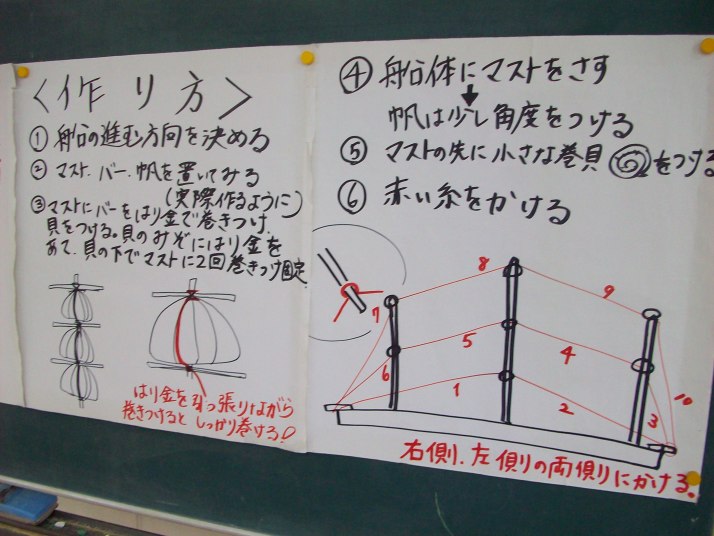 〈作り方〉
① 船の進む方向を決める
② マスト.バー.帆を置いてみる
(実際作るように)
③ マストにバーをはり金で巻きつけ
貝をつける。貝のみぞにはり金を
あて、貝の下でマストに2回巻きつけ固定
はり金を引っ張りながら
巻きつけると しっかり巻ける!
④ 船体にマストをさす
帆は少し角度をつける
⑤ マストの先に小さな巻貝 をつける
⑥ 赤い糸をかける
8
9
7
5
4
6
1
2
3
10
右側.左側りの両側りにかける。